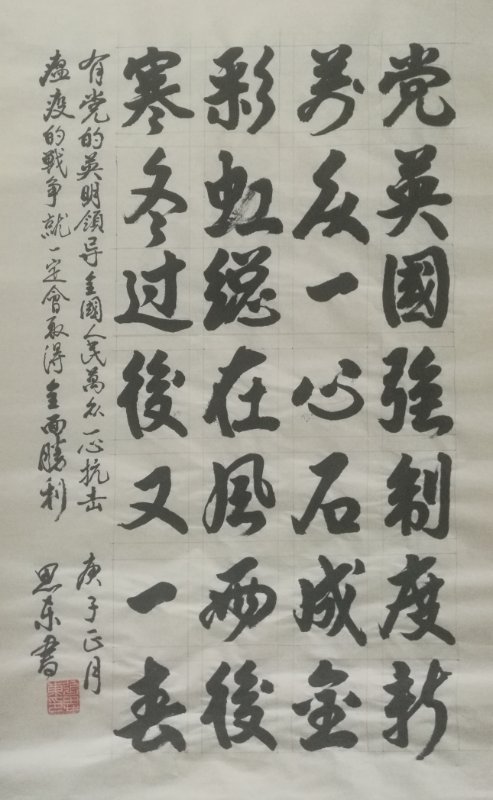 党英國強制度新
萬众一心石成金
彩虹總在風雨後
寒冬过後又一春
有党的英明領导全國人民萬众一心抗击
瘟疫的戰争就一定會取得全面勝利
庚子正月
思东書